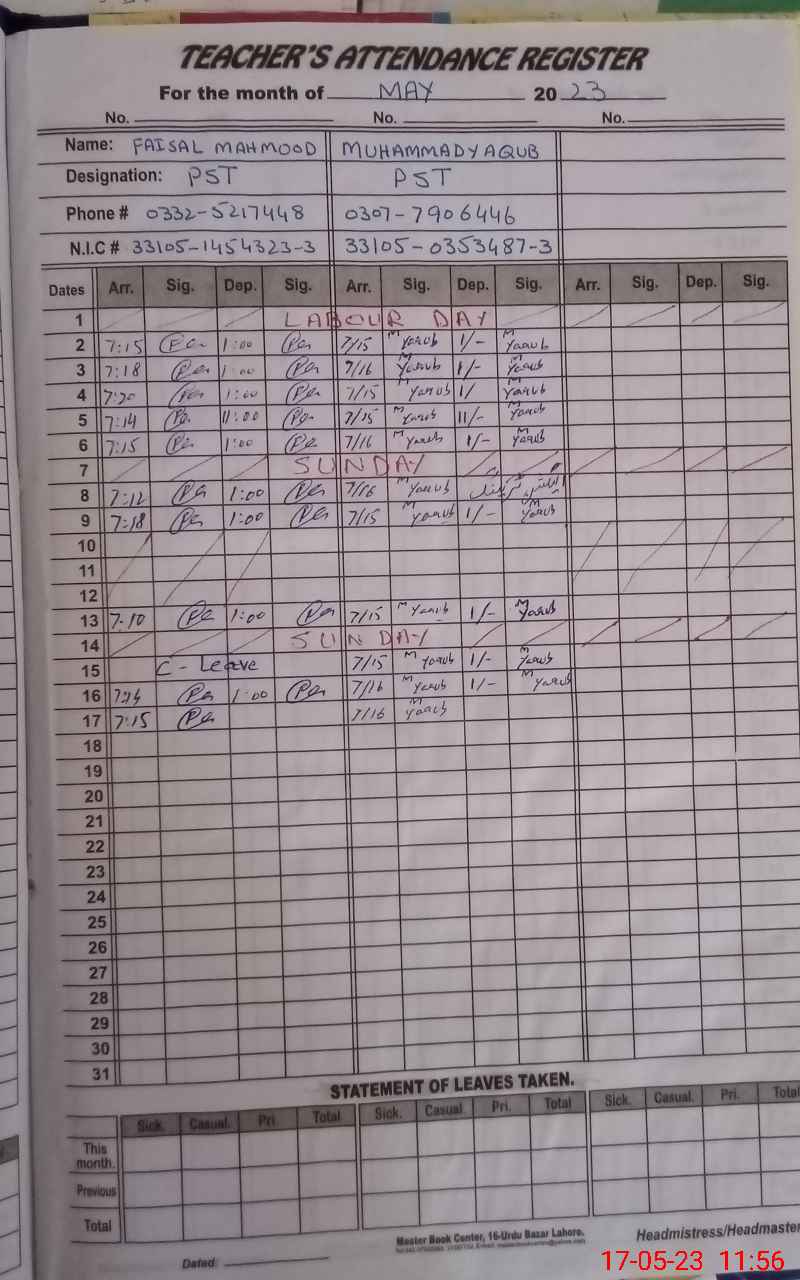 TEACHER'S ATTENDANCE REGISTER
For the month of MAY 2023
No. No. No.
Name: FAISAL MAHMOOD MUHAMMAD YAQUB
Designation: PST PST
Phone # 0332-5217448 0307-7906446
N.I.C # 33105-1454323-3 33105-0353487-3
Dates Arr. Sig. Dep. Sig. Arr. Sig. Dep. Sig. Arr. Sig. Dep. Sig.
1 LABOUR DAY
2 7:15 1:00 7/15 M Yaqub 1/- M Yaqub
3 7:18 1:00 7/16 M Yaqub 1/- M Yaqub
4 7:20 1:00 7/15 M Yaqub 1/ M Yaqub
5 7:14 11:00 7/15 M Yaqub 11/- M Yaqub
6 7:15 1:00 7/16 M Yaqub 1/- M Yaqub
7 SUNDAY
8 7:12 1:00 7/16 M Yaqub
9 7:18 1:00 7/15 M Yaqub 1/- M Yaqub
10
11
12
13 7-10 1:00 7/15 M Yaqub 1/- M Yaqub
14 SUNDAY
15 C - Leave 7/15 M Yaqub 1/- M Yaqub
16 7:14 1:00 7/16 M Yaqub 1/- M Yaqub
17 7:15 7/16 M Yaqub
18
19
20
21
22
23
24
25
26
27
28
29
30
31
STATEMENT OF LEAVES TAKEN.
Sick. Casual. Pri. Total Sick. Casual Pri. Total Sick. Casual. Pri. Total
This month.
Previous
Total
Master Book Center, 16-Urdu Bazar Lahore.
Headmistress/Headmaster
Dated:
17-05-23 11:56